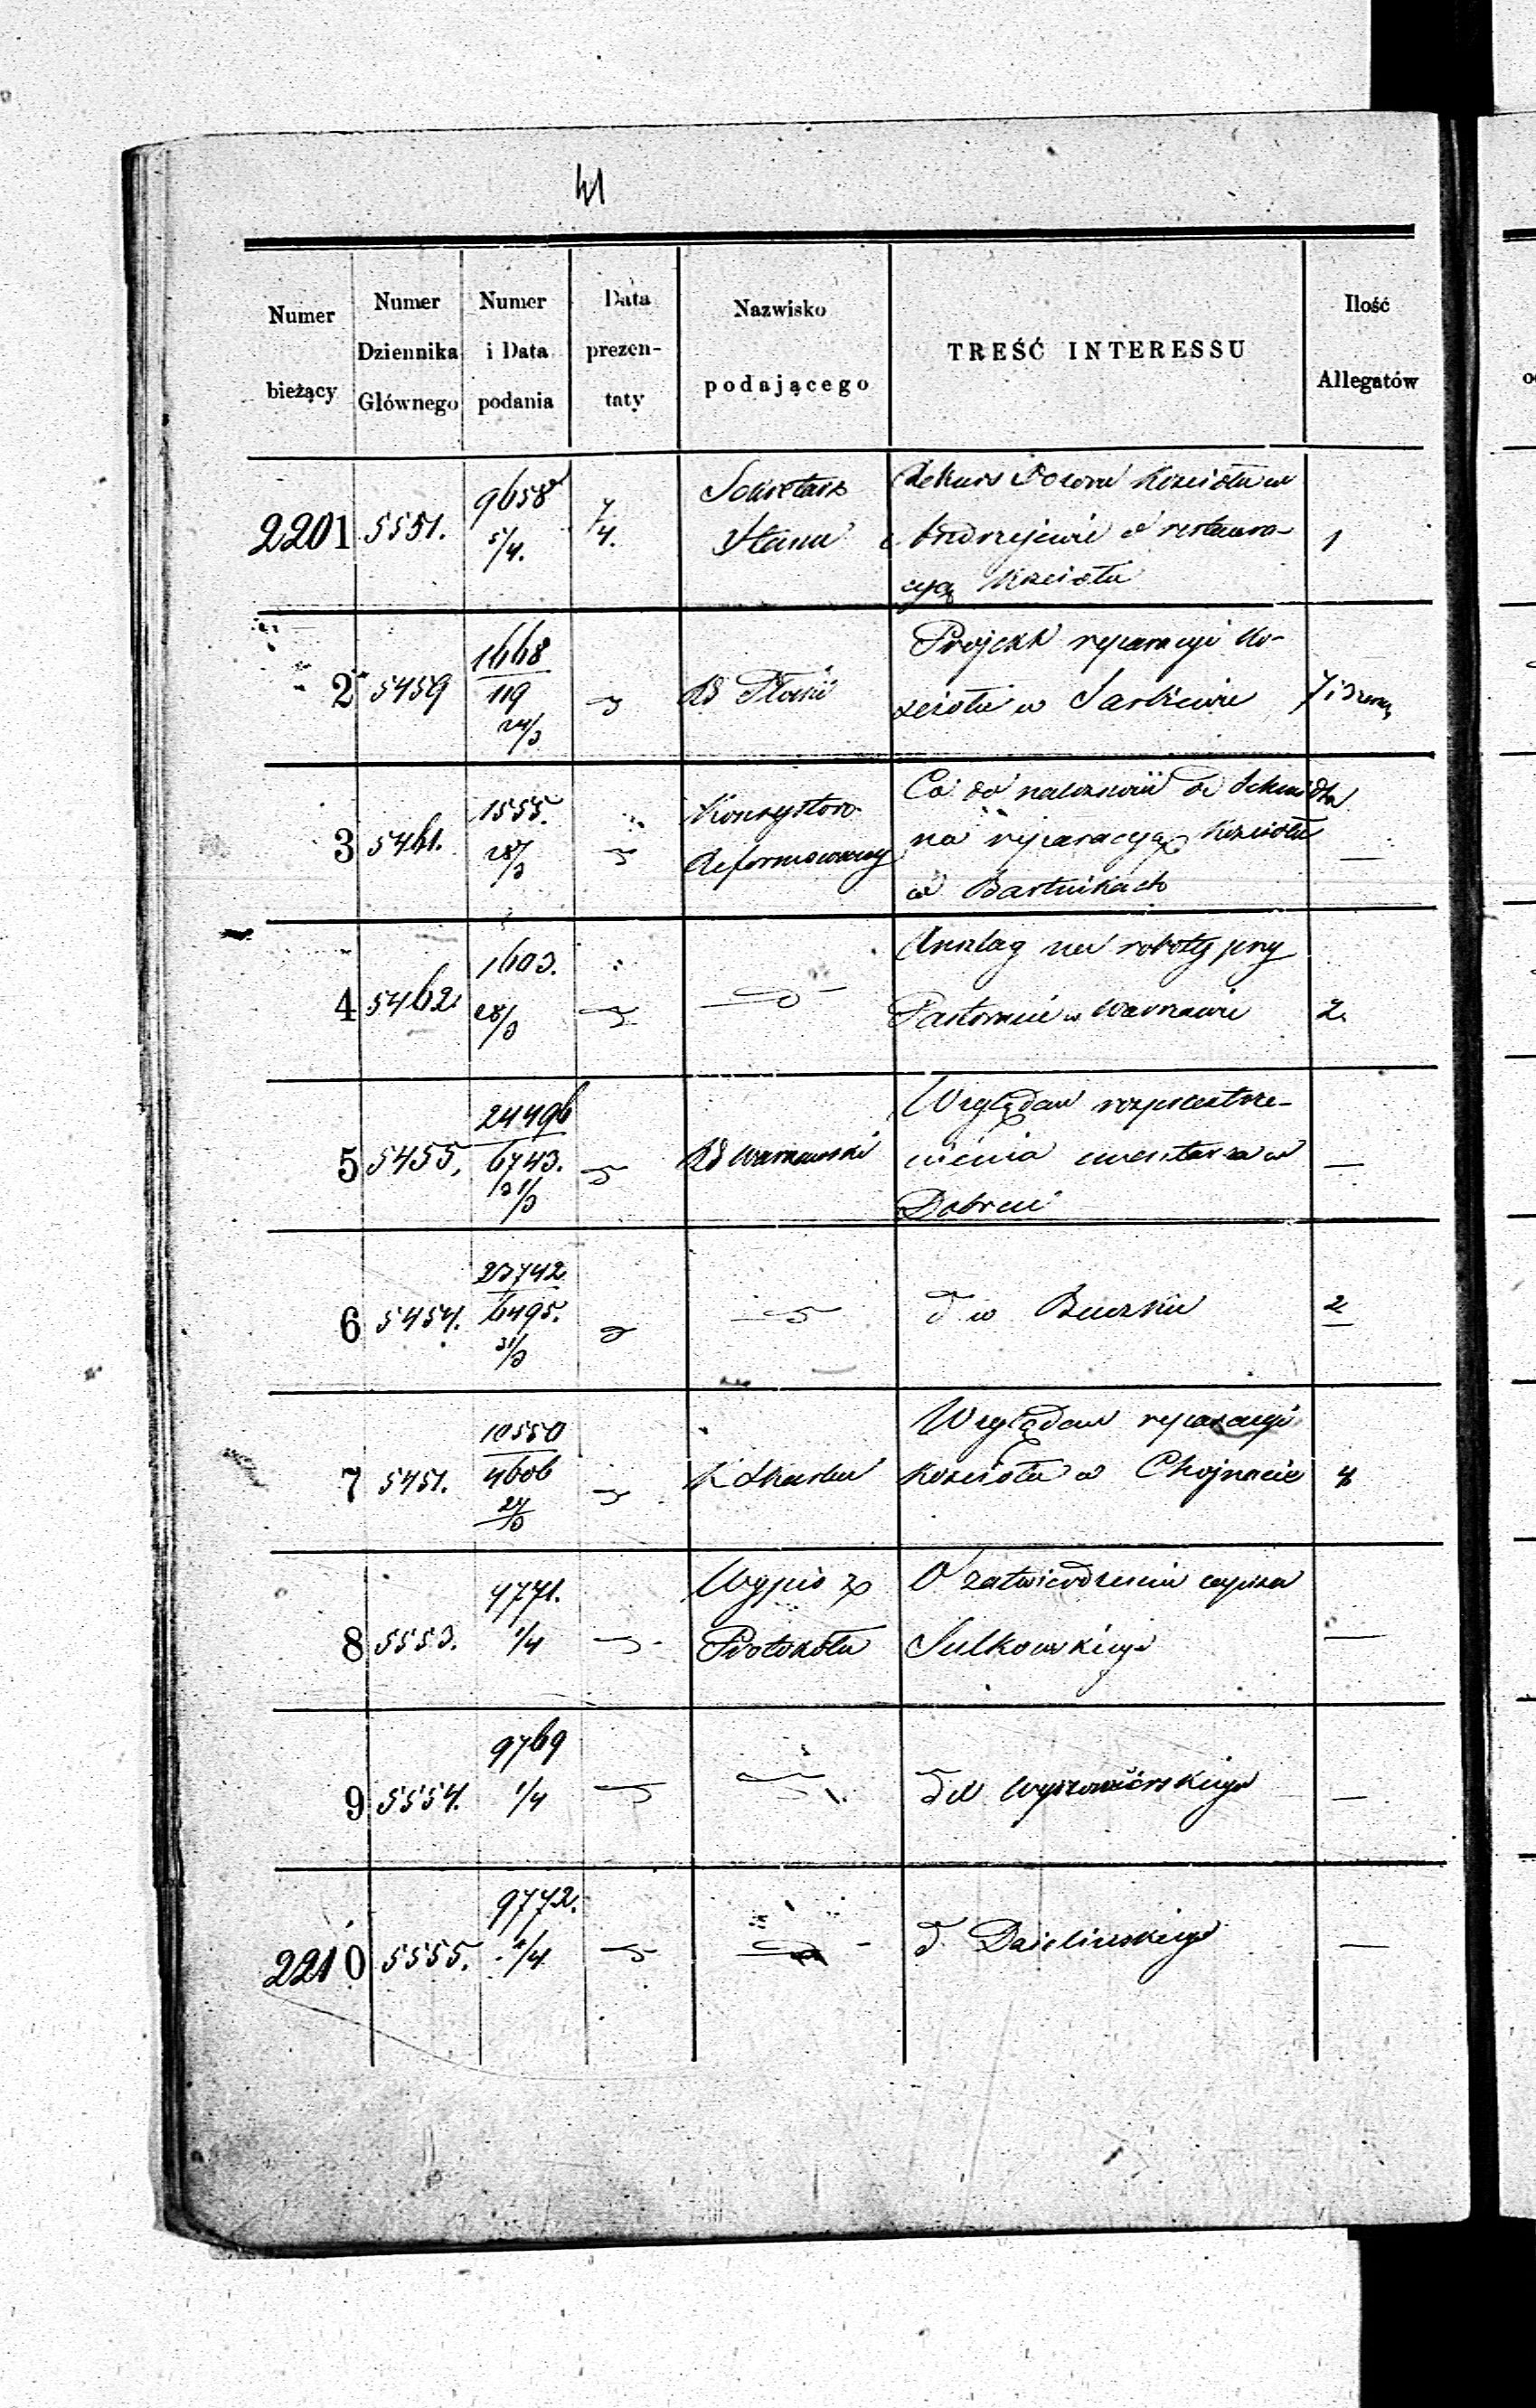 41
Numer bieżący
Numer Dziennika Głównego
Numer i Data podania
Data prezen-taty
Nazwisko podającego
TREŚĆ INTERESSU
Ilość Allegatów
2201 5551. 9658 5/4. 7/4. Sekretarz Stanu
Rekurs Dozoru Kościoła w
Andrzejewie o restaura-
cyą Kościoła
1
2 5459 1668/119 24/3 RG Płocki
Projekt reparacyi Ko-
ścioła w Sarbiewie
7 i
3 5461. 1555. 28/3 Konsystorz Reformowany
Co do należności dla Schmidta
na reparacyą Kościoła
w Bartnikach
—
4 5462 1603. 28/3 — d —
Anszlag na roboty przy
Pastoracie w Warszawie
2.
5 5455. 24496/6743. 31/3 RG Warszawski
Względem
inwentarza w
—
6 5454. 23742/6495. 31/3 — d
d w
2
7 5451. 10550/4606 27/3 K Skarbu
Względem reparacyi
Kościoła w Chojnacie
4
8 5553. 9771. 1/4 Wypis z Protokółu
O zatwierdzeniu wypisu
Sulkowskiego
—
9 5554. 9769 1/4
—
2210 5555. 9772. 1/4 — d —
d. Dzielińskiego
—